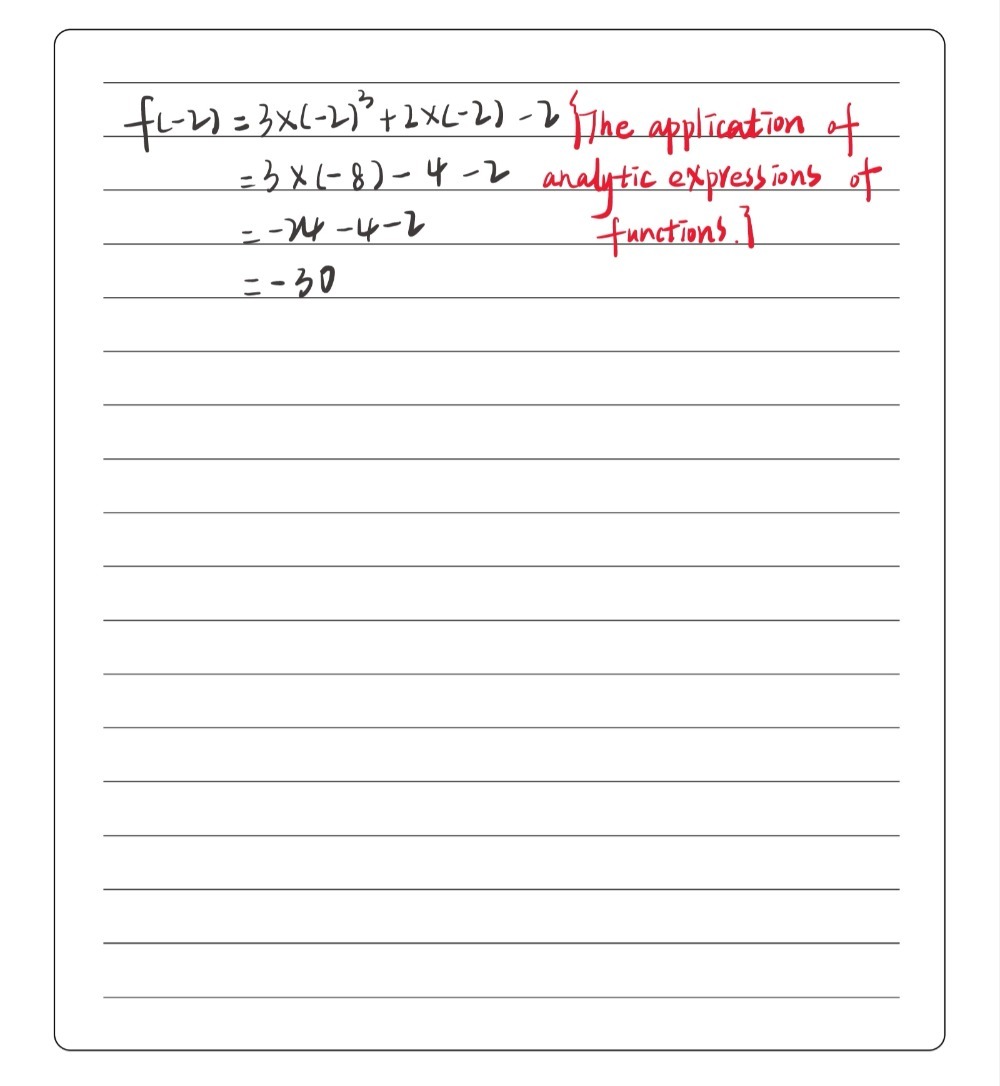 f(-2) = 3×(-2)³ + 2×(-2) - 2 {The application of
= 3×(-8) - 4 - 2 analytic expressions of
= -24 - 4 - 2 functions.}
= -30